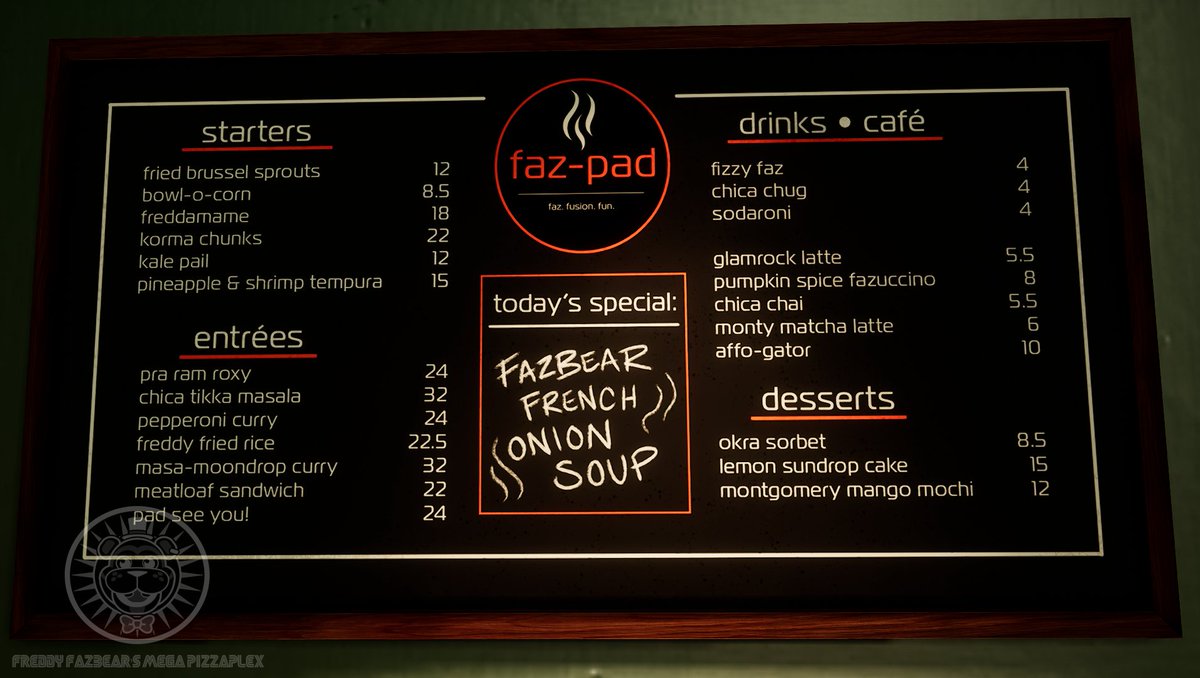 starters
fried brussel sprouts 12
bowl-o-corn 8.5
freddamame 18
korma chunks 22
kale pail 12
pineapple & shrimp tempura 15
entrées
pra ram roxy 24
chica tikka masala 32
pepperoni curry 24
freddy fried rice 22.5
masa-moondrop curry 32
meatloaf sandwich 22
pad see you! 24
faz-pad
faz. fusion. fun.
today's special:
FAZBEAR
FRENCH
ONION
SOUP
drinks • café
fizzy faz 4
chica chug 4
sodaroni 4
glamrock latte 5.5
pumpkin spice fazuccino 8
chica chai 5.5
monty matcha latte 6
affo-gator 10
desserts
okra sorbet 8.5
lemon sundrop cake 15
montgomery mango mochi 12
FREDDY FAZBEAR'S MEGA PIZZAPLEX